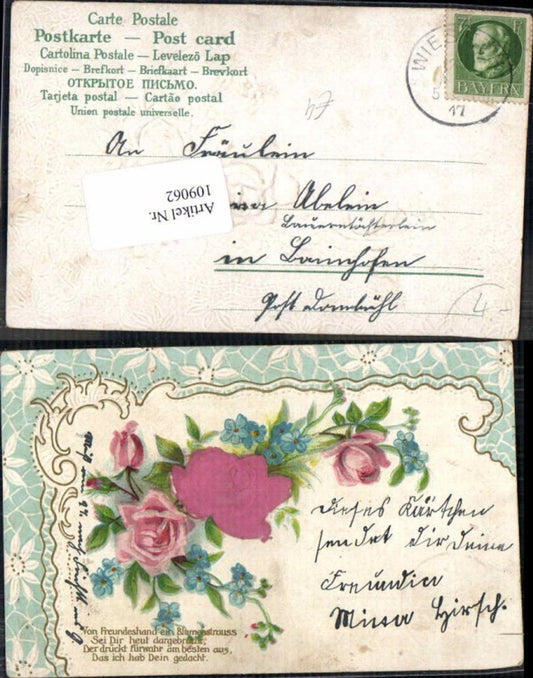 Carte Postale
Postkarte — Post card
Cartolina Postale — Levelező Lap
Dopisnice — Brefkort — Briefkaart — Brevkort
ОТКРЫТОЕ ПИСЬМО.
Tarjeta postal — Cartão postal
Union postale universelle.
BAYERN
WIE
5
17
An Fräulein
Artikel Nr.
109062
Abelein
Bauerntöchterlein
in Bainhofen
Post Dombühl
4-
dieses Kärtchen
sendet dir deine
Freundin
Mina Hirsch.
Von Freundeshand ein Blumenstrauss
Sei Dir heut dargebracht,
Der drückt fürwahr am besten aus,
Das ich hab Dein gedacht.